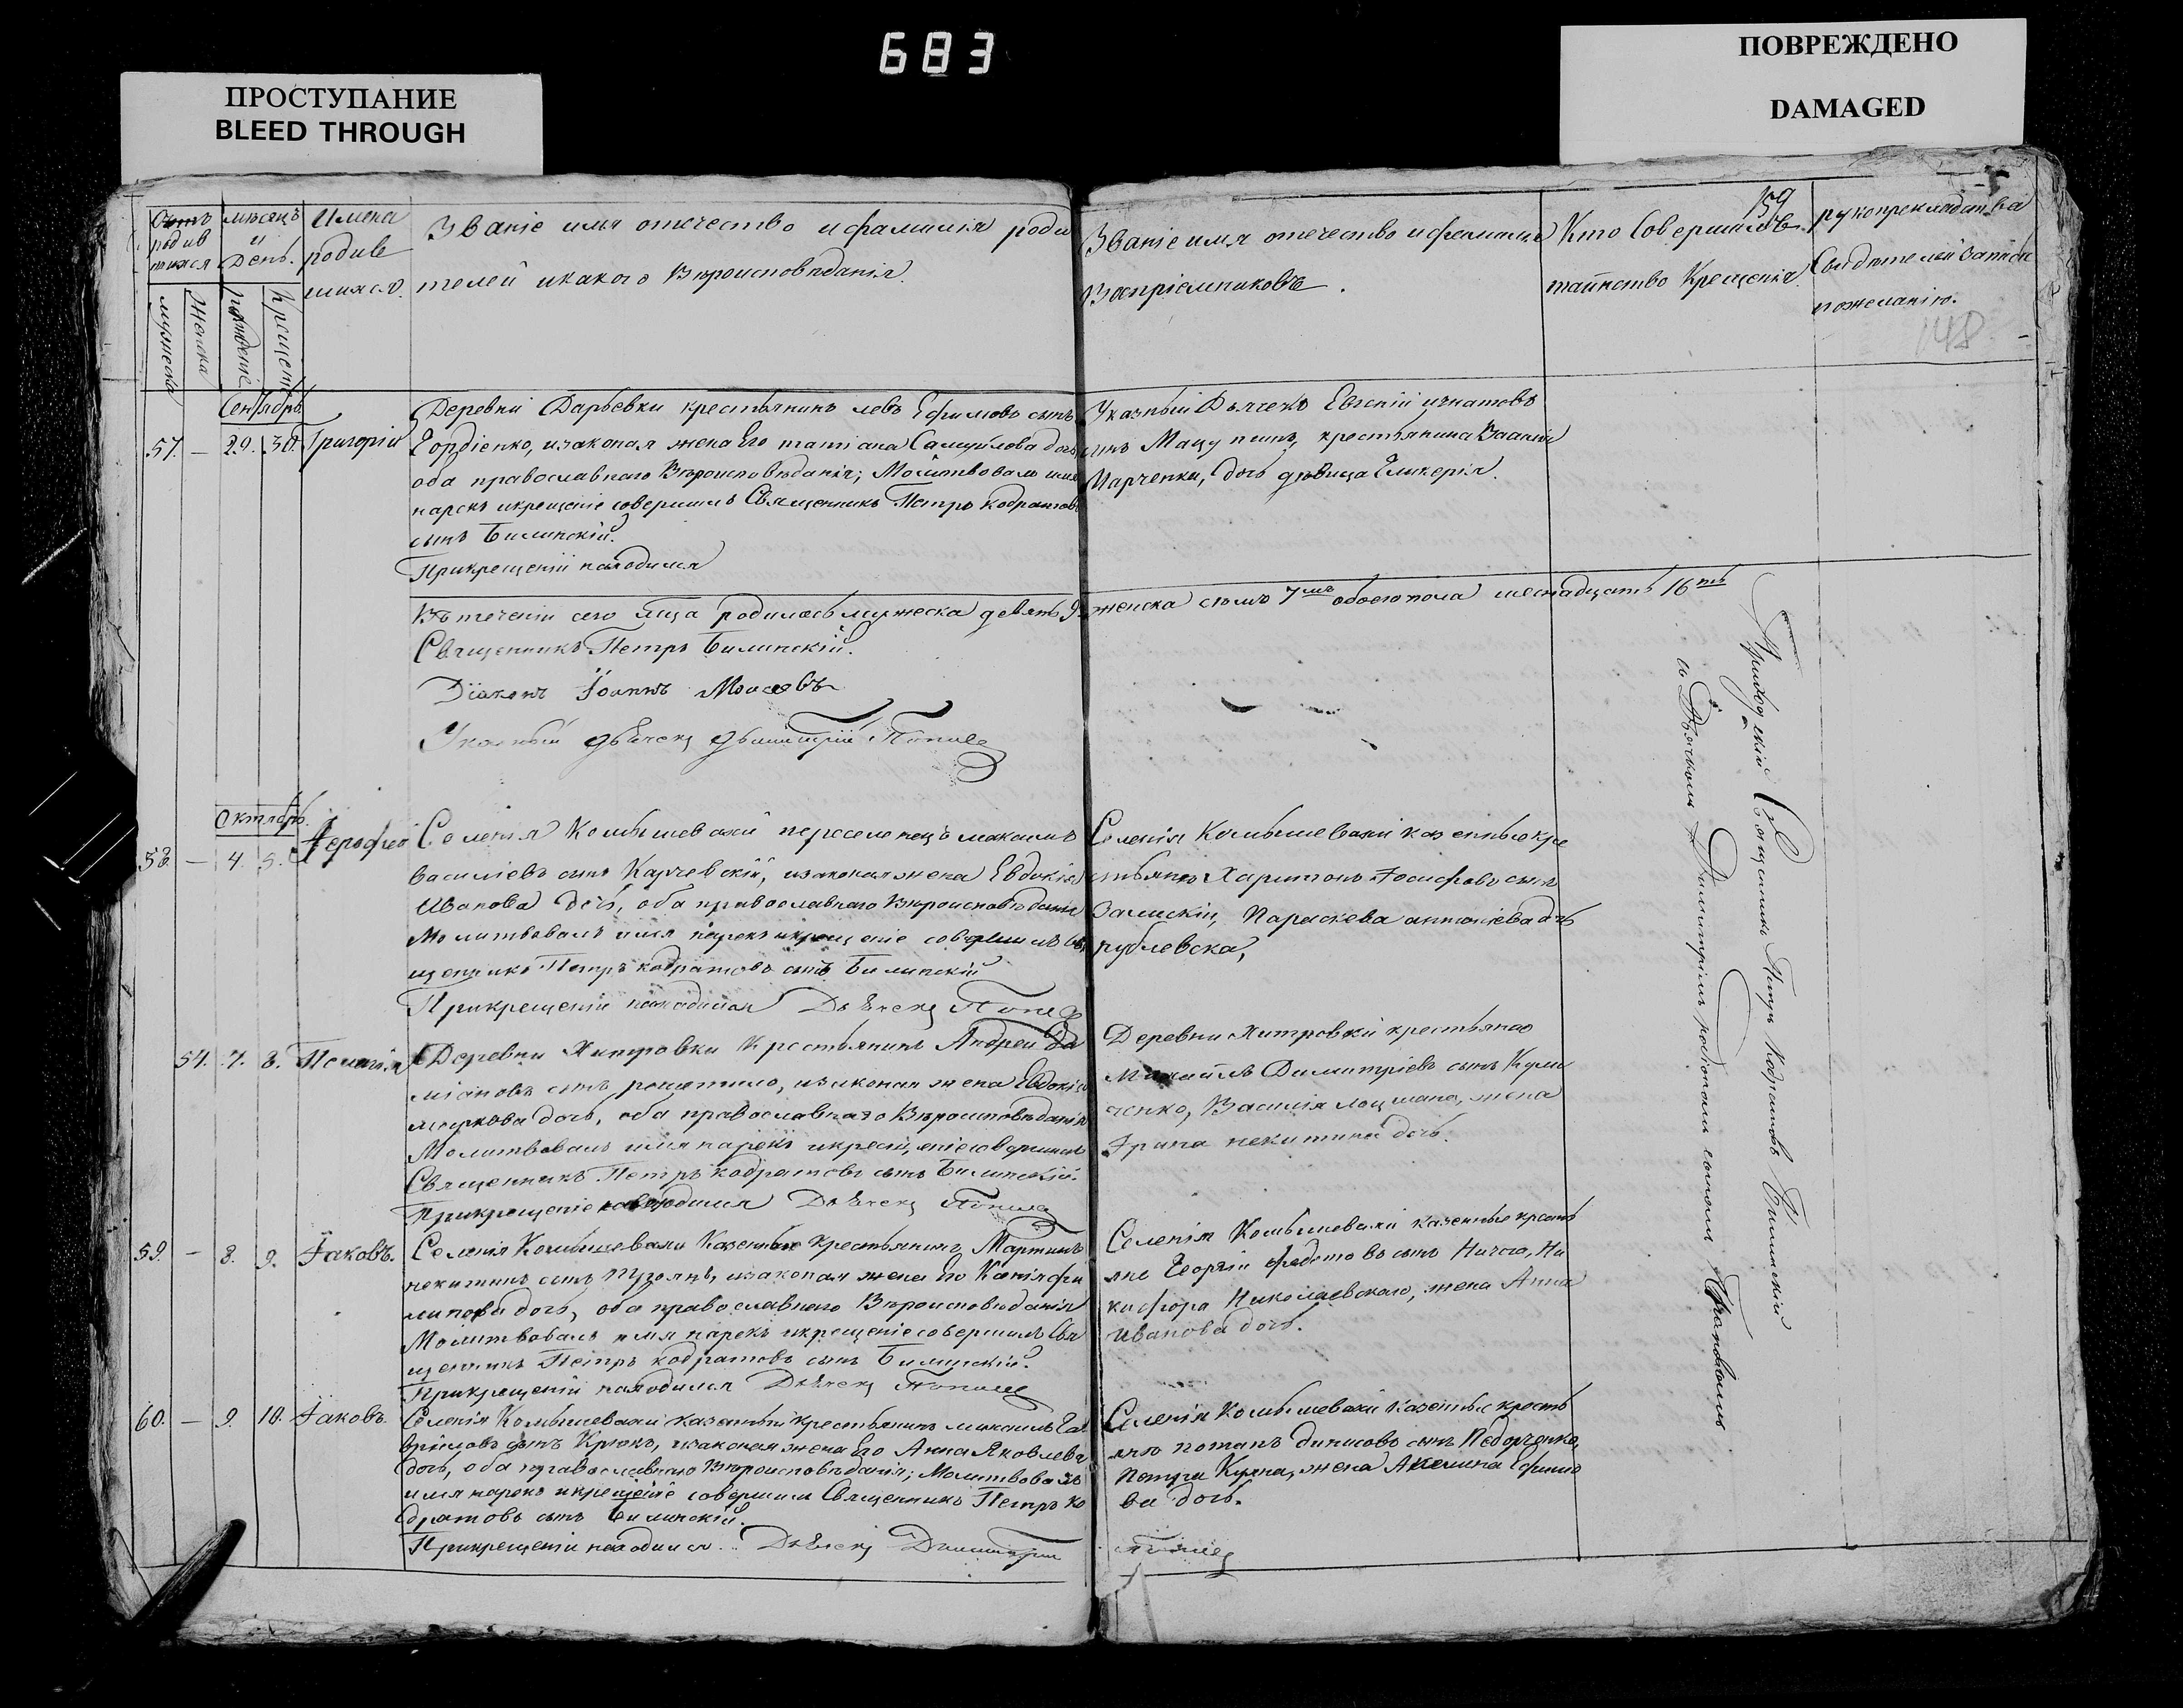 683
ПРОСТУПАНИЕ
BLEED THROUGH
ПОВРЕЖДЕНО
DAMAGED
159
148
родив
шихся
мѣсяцъ
и
День.
Имена
родив
шихся.
мужеска
женска
рожденіе
Крещеніе
Званіе имя отечество и фамилія роди
телей и какого Вѣроисповѣданія.
Званіе имя отечество и фамилія
Воспріемниковъ.
Кто Совершалъ
таинство Крещенія
рукоприкладства
Свидѣтелей записи
по желанію.
Сентябрь
57. — 29. 30. Григорій
Деревни Дарьевки крестьянинъ левъ Ефимовъ сынъ
Гордіенко, изаконая жена Его татіана Самуилова дочь
оба православнаго Вѣроисповѣданія; Молитвовалъ имя
нарекъ икрещеніе совершилъ Священникъ Петръ кодратовъ
сынъ Билинскій.
Прикрещеніи находился
Указный Дьячекъ Евгеній игнатовъ
крестьянина
Марченки, дочь дѣвица Гликерія.
Въ теченіи сего мца родилось мужеска девять 9
женска семь 7мь обоего пола шеснадцать 16ть
Священникъ Петръ Билинскій.
Діаконъ Іоаннъ Моисеевъ
Указный дьячекъ Дьмитрій Попив
Октябрь.
58. — 4. 5. Іерофей
Селенія Комышеваxи переселенецъ максимъ
василіевъ сынъ Карчевскій, изаконая жена Евдокія
Иванова дочь, оба православнаго Вѣроисповѣданія
Молитвовалъ имя нарекъ икрещеніе совершилъ Свя
щенникъ Петръ кодратовъ сынъ Билинскій
Прикрещеніи находился Дьячекъ
Селенія Комышеваxи казенные кре
стьянъ Харитонъ Іосифовъ сынъ
Залискій, Параскева антоніева дочь
54. 7. 8. Пелагія
Деревни Хитровки Крестьянинъ Андрей Да
міановъ сынъ решетило, изаконая жена Евдокія
маркова дочь, оба православнаго Вѣроисповѣданія
Молитвовалъ имя нарекъ икрещеніе совершилъ
Священникъ Петръ кодратовъ сынъ Билинскій.
Прикрещеніе находился Дьячекъ
Деревни Хитровки крестьяне
Михаилъ Димитріевъ сынъ
Василія лоцмана, жена
Ірина никитина дочь.
59. — 8. 9. Іаковъ.
Селенія Комышеваxи Казенные крестьянинъ Мартинъ
никитинъ сынъ изаконая жена Его Ксенія фи
липова дочь, оба православнаго Вѣроисповѣданія
Молитвовалъ имя нарекъ икрещеніе совершилъ Свя
щенникъ Петръ кодратовъ сынъ Билинскій.
Прикрещеніи находился Дьячекъ
Селенія Комышеваxи казенные кресть
яне Георгій федотовъ сынъ Ничого, Ни
кифора Николаевского, жена Анна
Иванова дочь.
60. — 9. 10. Іаковъ.
Селенія Комышеваxи казенный крестьянинъ максимъ Га
вріиловъ сынъ Крюкъ, изаконая жена Его Анна Яковлева
дочь, оба православнаго Вѣроисповѣданія; Молитвовалъ
имя нарекъ икрещеніе совершилъ Священникъ Петръ ко
дратовъ сынъ Билинскій.
Прикрещеніи находился Дьячекъ Димитрій
Селенія Комышеваxи казенные кресть
яне потапъ динисовъ сынъ Педорченко,
жена Акелина Ефимо
ва дочь.
Приходскій Священникъ Петръ Кодратовъ Билинскій
съ Дьячкомъ Димитріемъ